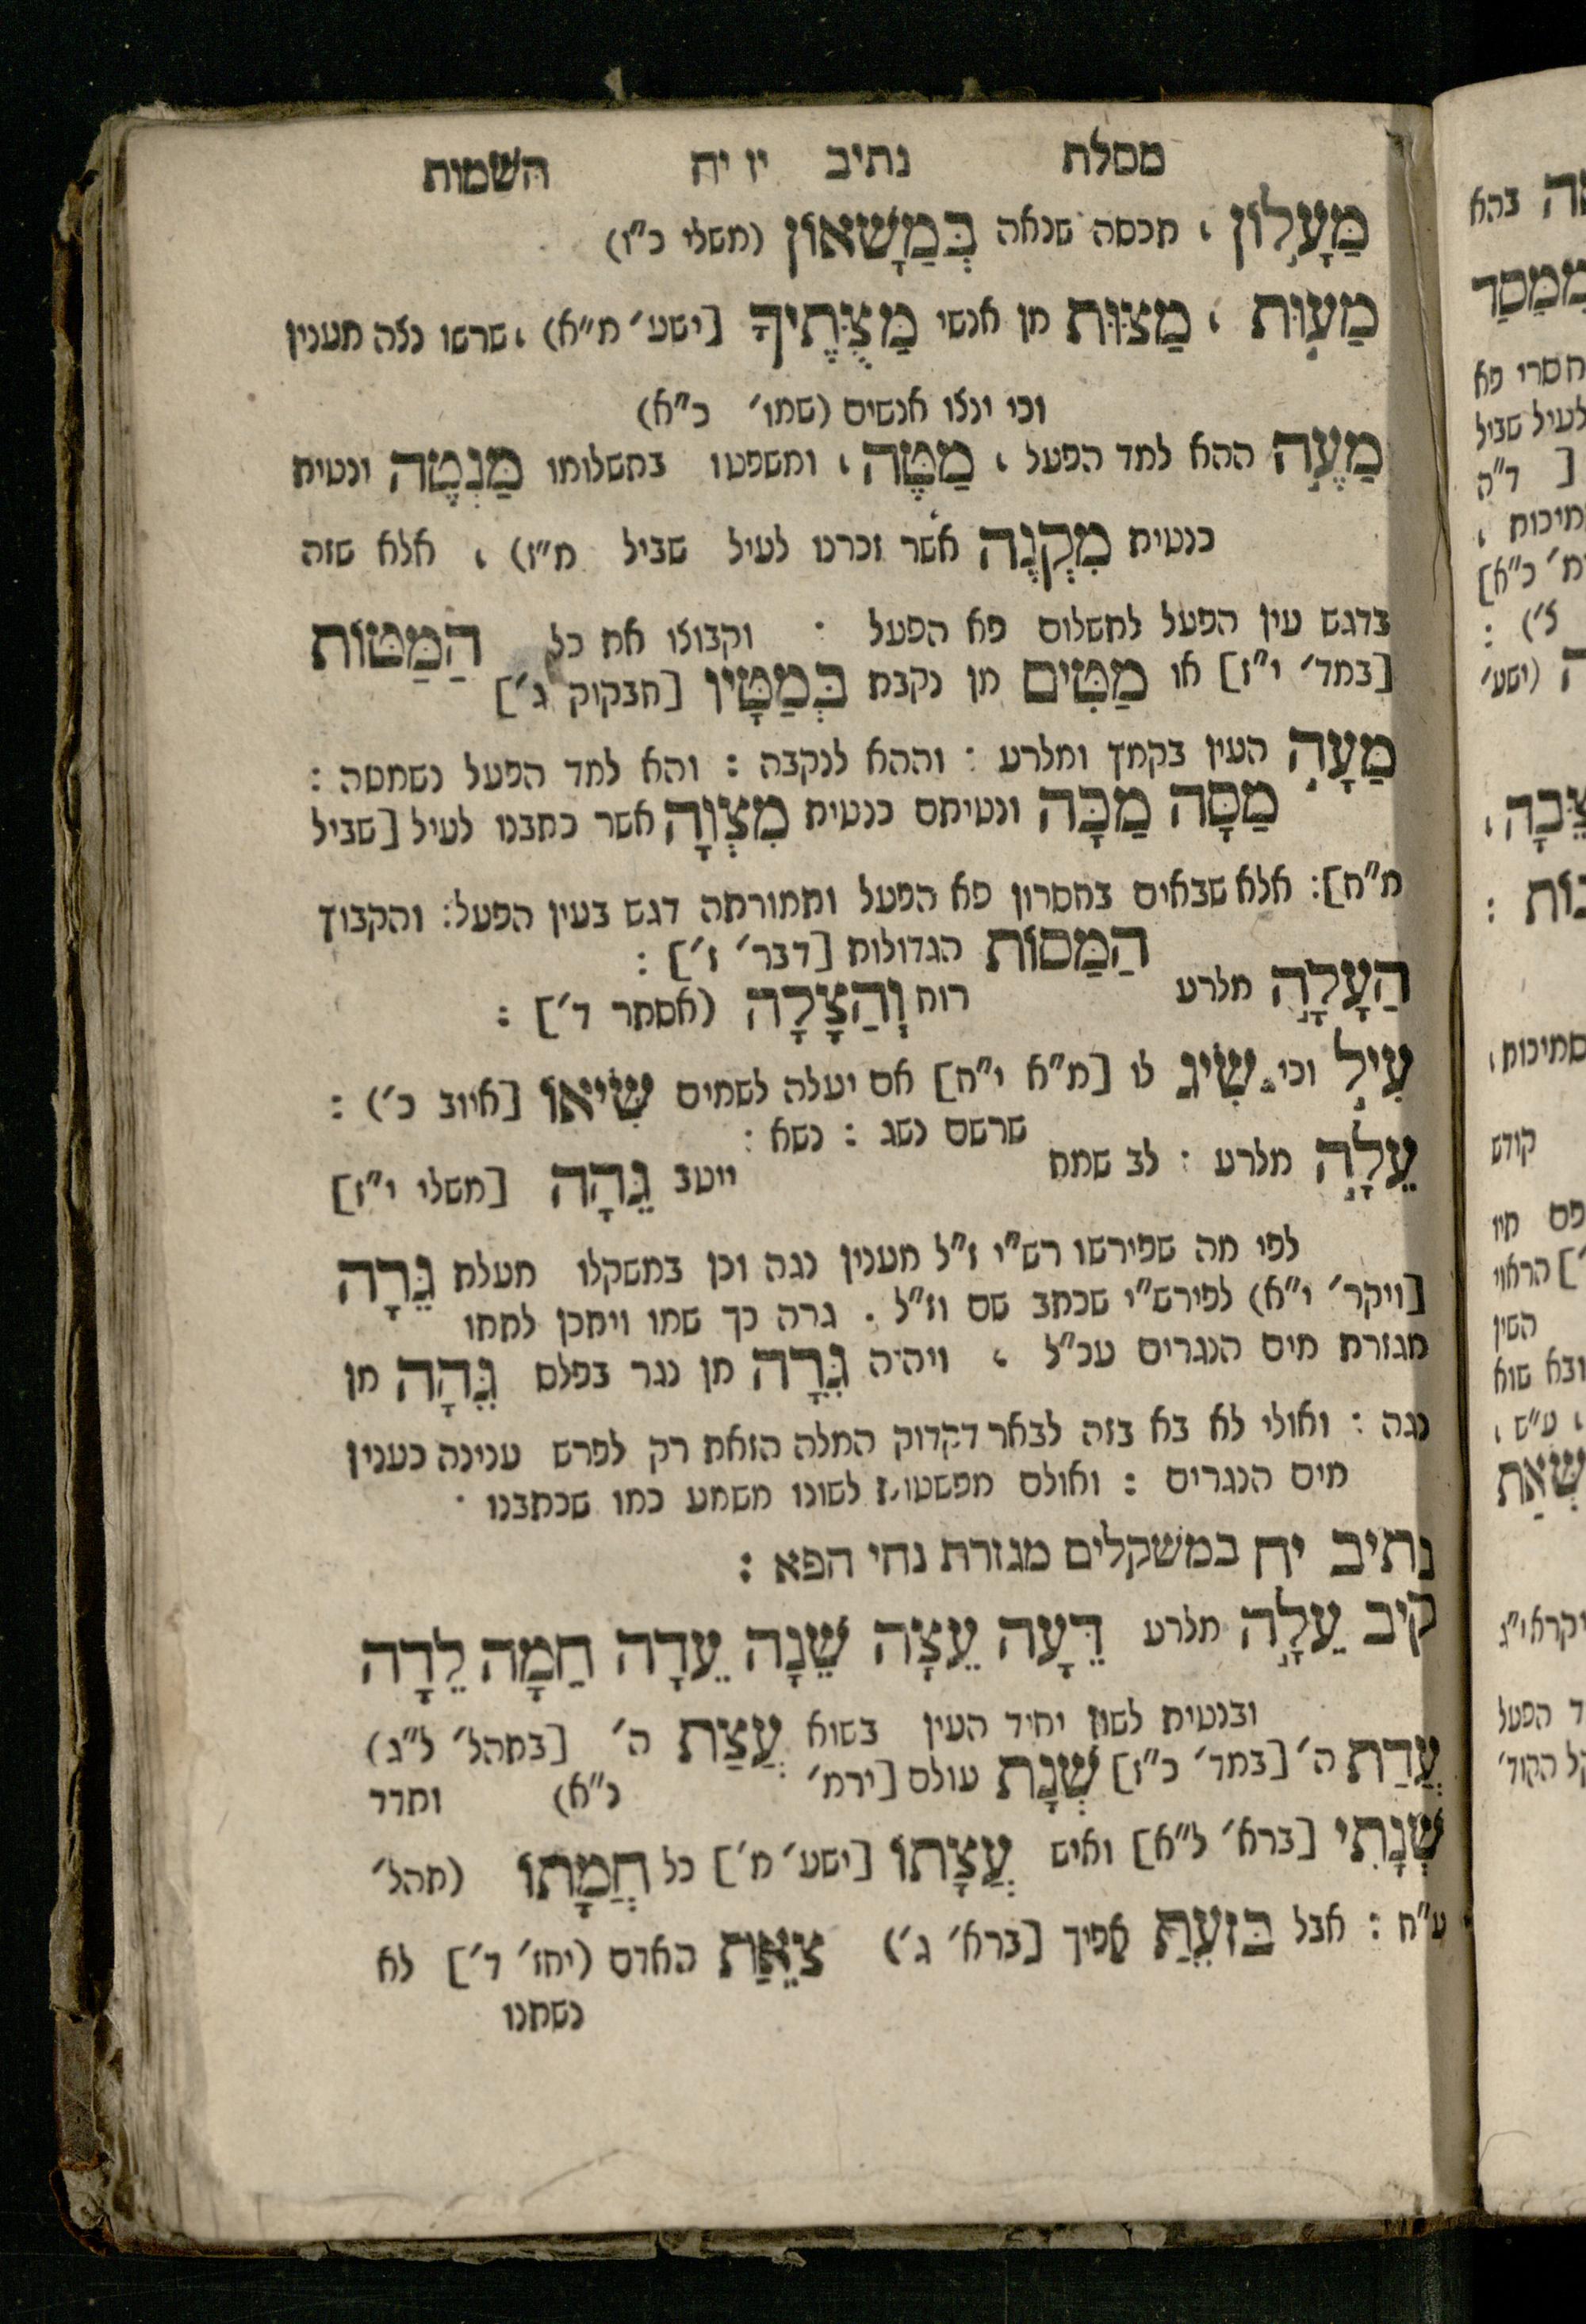 מסלת נתיב יז יח השמות
מַעָלוֹן , תכסה שנאה בְּמַשָׁאוֹן (משלי כ"ו)
מַעוּת , מַצוּת מן אנשי מַצֻּתֶיךָ [ישע' מ"א) , שרשו נצה מענין
וכי ינצו אנשים (שמו' כ"א)
מַעֶה ההא למד הפעל , מַטֶּה , ומשפטו בתשלומו מַנְטֶה ונטית
כנטית מִקְנֶה אשר זכרנו לעיל שביל מ"ז) , אלא שזה
בדגש עין הפעל לתשלום פא הפעל : וקבוצו את כל הַמַּטּוֹת
[במד' י"ז] או מַטִּים מן נקבת בְּמַטָּיו [חבקוק ג']
מַעָה העין בקמץ ומלרע : וההא לנקבה : והא למד הפעל נשמטה :
מַסָּה מַכָּה ונטיתם כנטית מִצְוָה אשר כתבנו לעיל [שביל
מ"ח]: אלא שבאים בחסרון פא הפעל ותמורתה דגש בעין הפעל: והקבוץ
הַמַּסוֹת הגדולות [דבר' ז'] :
הַעָלָה מלרע רוח וְהַצָלָה (אסתר ד'] :
עִיל וכי שִׂיג לו [מ"א י"ח] אם יעלה לשמים שִׂיאוֹ [איוב כ') :
שרשם נשג : נשא :
עֵלָה מלרע : לב שמח ייטב גֵּהָה [משלי י"ז]
לפי מה שפירשו רש"י ז"ל מענין נגה וכן במשקלו מעלת גֵּרָה
[ויקר' י"א) לפירש"י שכתב שם וז"ל . גרה כך שמו ויתכן לתתו
מגזרת מים הנגרים עכ"ל , ויהיה גֵּרָה מן נגר בפלס גֵּהָה מן
נגה : ואולי לא בא בזה לבאר דקדוק המלה הזאת רק לפרש ענינה כענין
מים הנגרים : ואולם מפשטות לשונו משמע כמו שכתבנו .
נתיב יח במשקלים מגזרת נחי הפא :
קיב עֵלָה מלרע דֵּעָה עֵצָה שֵׁנָה עֵדָה חֵמָה לֵדָה
ובנטית לשון יחיד העין בשוא עֲצַת ה' [בתהל' ל"ג)
עֲדַת ה' [במד' כ"ז] שְׁנָת עולם [ירמ' נ"א) ותדד
שְׁנָתִי [ברא' ל"א] ואיש עֲצָתוֹ [ישע' מ'] כל חֲמָתוֹ (תהל'
ע"ח : אבל בְּזֵעַת אפיך [ברא' ג') צֵאַת האדם (יחז' ד'] לא
נשתנו